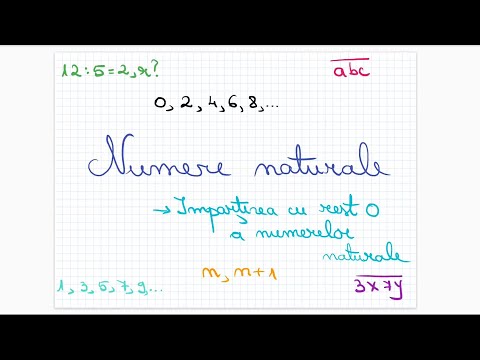 12:5=2,r?
abc
0, 2, 4, 6, 8, ...
Numere naturale
→ Împărțirea cu rest 0
a numerelor
naturale
n, n+1
1, 3, 5, 7, 9, ...
3x7y